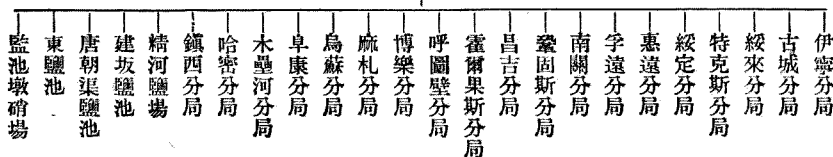 伊寧分局
古城分局
綏來分局
特克斯分局
綏定分局
惠遠分局
孚遠分局
南關分局
鞏固斯分局
昌吉分局
霍爾果斯分局
呼圖壁分局
博樂分局
麻札分局
烏蘇分局
阜康分局
木壘河分局
哈密分局
鎮西分局
精河鹽場
建坂鹽池
唐朝渠鹽池
東鹽池
監池墩硝場